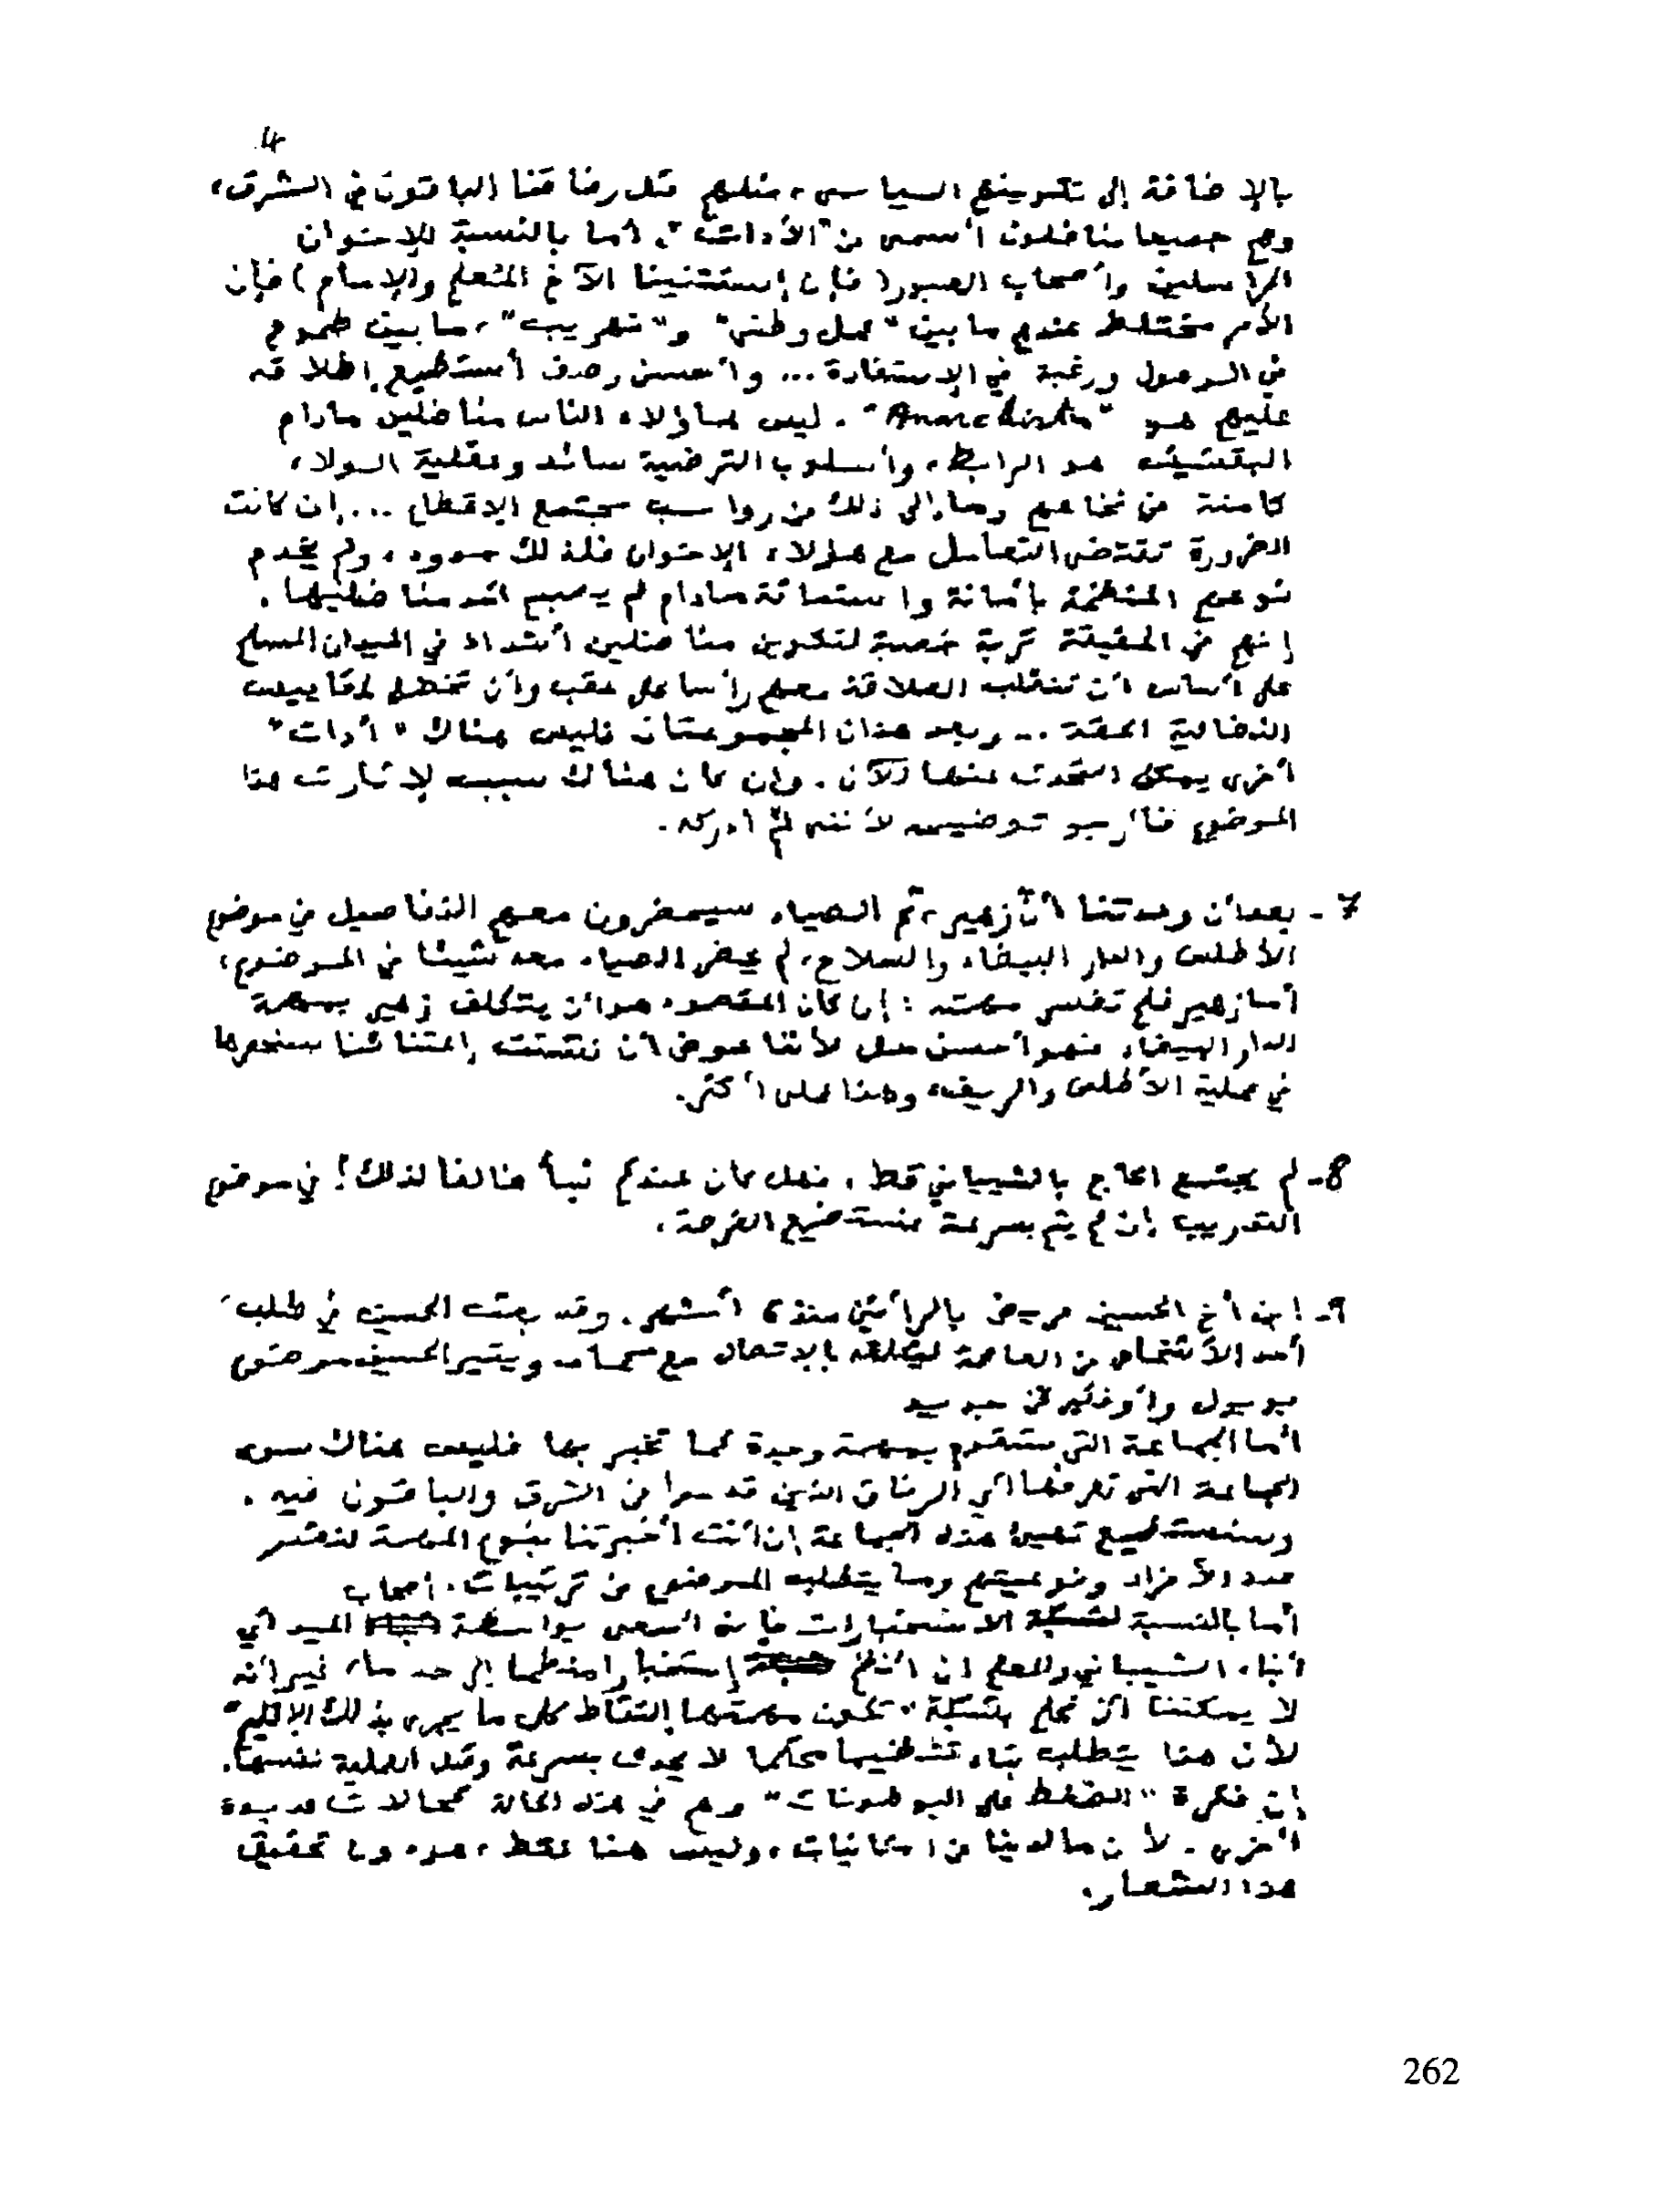 4
بالإضافة إلى تكوينهم السياسي، مثلهم مثل رفاقنا الباقون في الشرق،
وهم جميعا مناضلون أسمى من "الأدات". أما بالنسبة للإخوان
المراسلين وأصحاب العبور (فإن إستثنينا الآخ المعلم والإمام) فإن
الأمر مختلط عندهم ما بين "عمل وطني" و"تهريب"، ما بين طموح
في الوصول ورغبة في الإستفادة... وأحسن وصف أستطيع إطلاقه
عليهم هو "Anarchists". ليس هاؤلاء الناس مناضلين مادام
البقشيش هو الرابط، وأسلوب الترضية سائد وعقلية الولاء
كامنة في نخاعهم وما إلى ذلك من رواسب مجتمع الإقطاع... إن كانت
الضرورة تقتضي التعامل مع هؤلاء الإخوان فلذلك حدود، ولم يخدم
نوعهم المنظمة بأمانة واستماتة مادام لم يصبح أحد مناضليها.
إنهم في الحقيقة تربة خصبة لتكوين مناضلين أشداء في الميدان المسلح
على أساس أن تنقلب العلاقة معهم رأسا على عقب وأن تخضع لمقاييس
النضالية الحقة... وبعد هذان المجموعتان فليس هناك "أدات"
أخرى يمكن التحدث عنها الآن. وإن كان هناك سبب لإثارت هذا
الموضوع فأرجو توضيحه لأنني لم أدركه.
7- بعد أن وعدتنا أن زهير، ثم الضياء سيحضرون معهم التفاصيل في موضوع
الأطلس والدار البيضاء والسلاح، لم يحضر الضياء معه شيئا في الموضوع،
أما زهير فلم تفسر مهمته: إن كان المقصود هو أن يتكلف زهير بمهمة
الدار البيضاء فهو أحسن حل لأننا عوض أن نتشتت إعتنائنا سنحصرها
في عملية الأطلس والريف، وهذا عملي أكثر.
8- لم يجتمع الحاج بالشيباني قط، فهل كان عندكم نبأ مخالفا لذلك! في موضوع
التدريب إن لم يتم بسرعة فستضيع الفرصة.
9- إبن أخ الحسين مريض بالرأس منذ 2 أشهر. وقد بعث الحسين في طلب
أحد الأشخاص من العاصمة ليكلفه بالإتصال مع ويثير الحسين موضوع
وأوفقير من جديد
أما الجماعة التي ستقوم بمهمة وحيدة كما تخبر بها فليس هناك سوى
الجماعة التي تعرفها أي الرفاق الذين قدموا من الشرق والباقون فيه.
وسنستطيع تعيين هذه الجماعة إن أنت أخبرتنا بنوع المهمة لنعتبر
عدد الأفراد ونوعيتهم وما يتطلبه الموضوع من ترتيبات.
أما بالنسبة لشبكة الاستخبارات فإنه أسعى بواسطة أصحاب الميد أي
أبناء الشيباني والمعلم ان أنظم إستخبارا منظما إلى حد ما، غير أنه
لا يمكننا أن نحلم بشبكة "تكون مهمتها إلتقاط كل ما يجري بذلك الإقليم"
لأن هذا يتطلب بناء تنظيميا محكما لا يجدى بسرعة وقبل العملية نفسها.
إن فكرة "الضغط على البوطونات" وهم في هذه الحالة كحالات عديدة
أخرى. لأن ما لدينا من امكانيات، وليس هنا فقط، هو دون تحقيق
هذا الشعار.
262